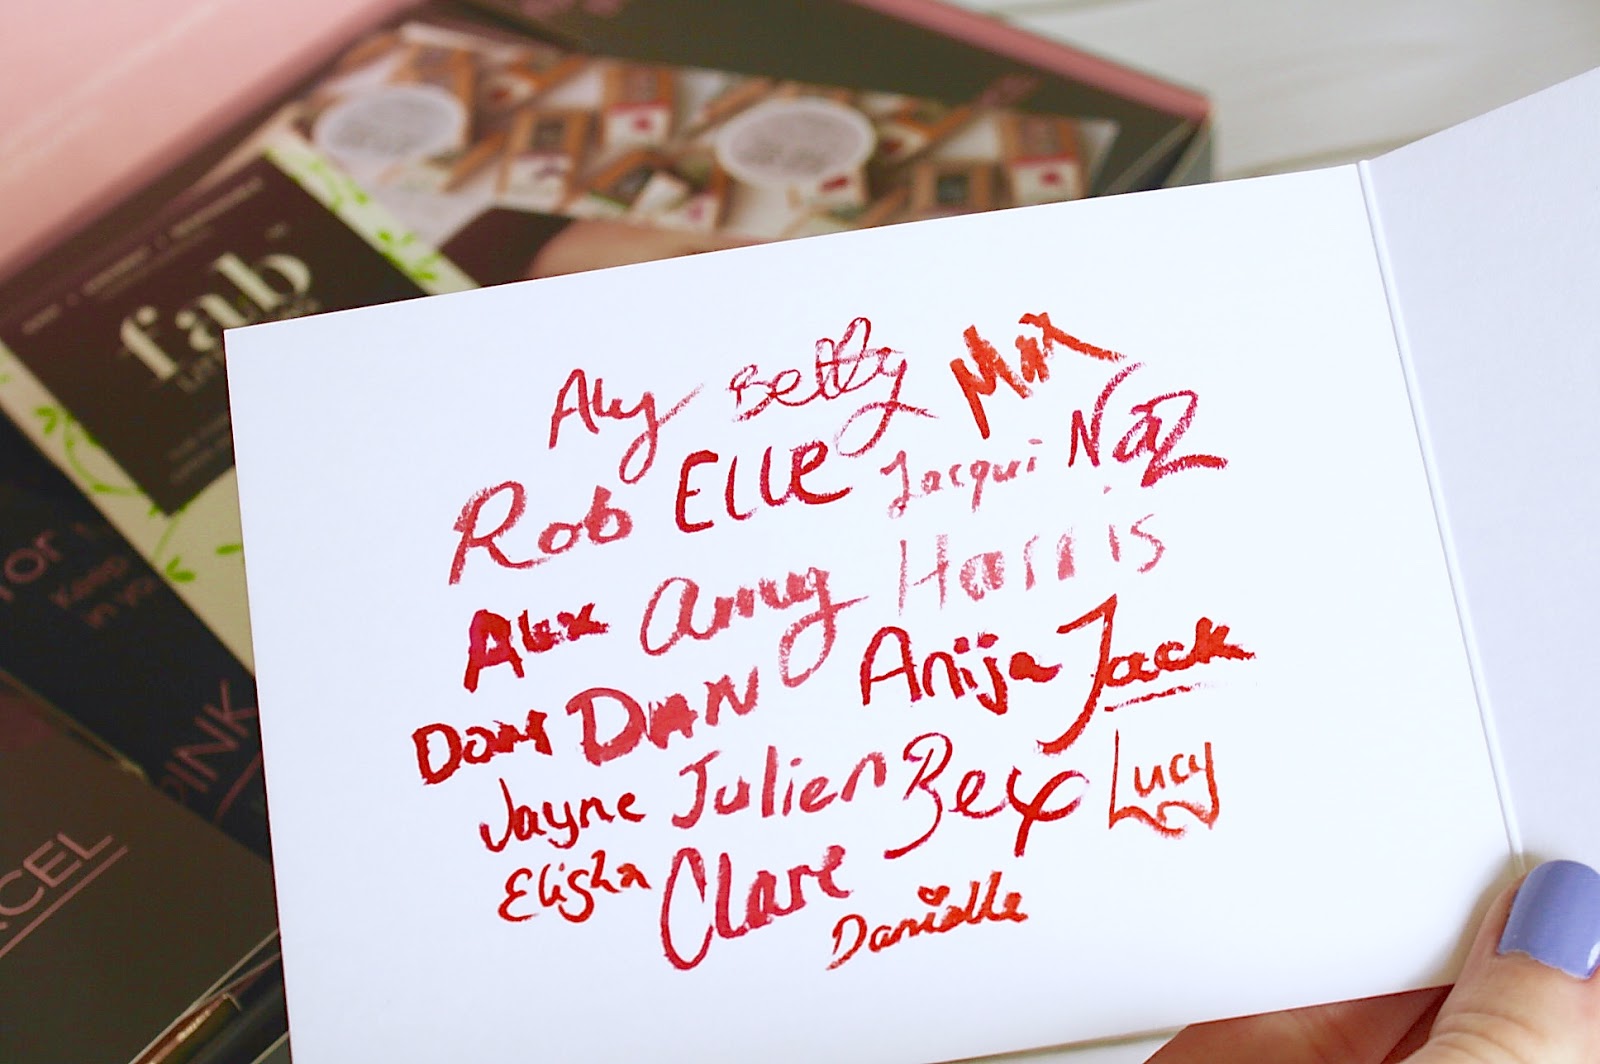 Aly Betty Max
Rob ELLE Jacqui Naz
Alex Amy Harris
Dom DAN Anija Jack
Jayne Julien Bex Lucy
Elisha Clare
Danielle
fab
Keep
in yo
PINK
RCEL